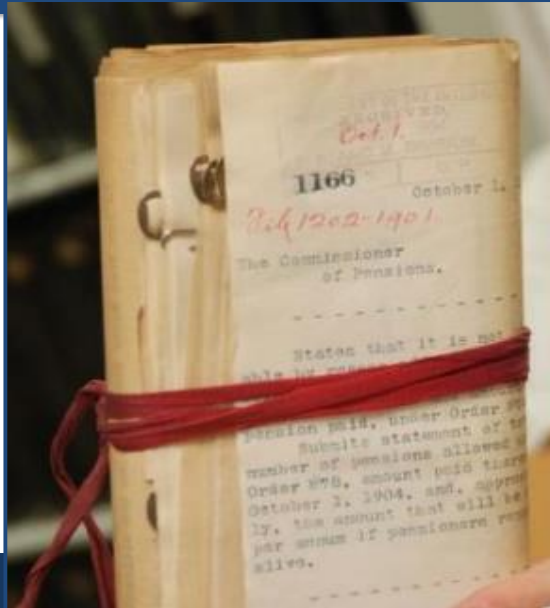 RECEIVED
Oct. 1.
1166
October 1,
File 1202-1901.
The Commissioner
of Pensions.
States that it is not
able by
pension paid, under Order
Submits statement of
number of pensions allowed
Order #78, amount paid
October 1, 1904, and,
ly, the amount that will be
per annum if pensioners
alive.